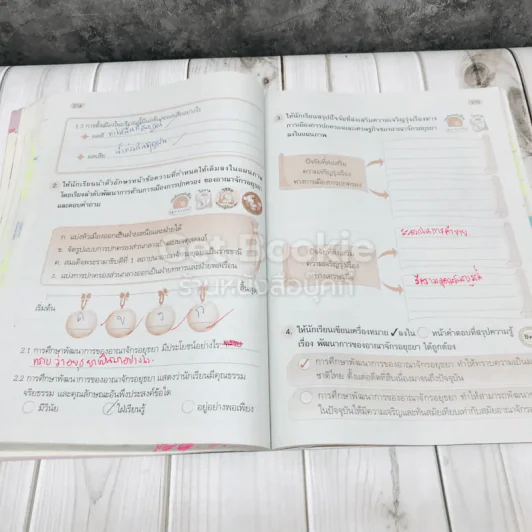 1.2 การตั้งเมืองในบริเวณ
ผลดี
ผลเสีย น้ำท่วม
2. ให้นักเรียนนำตัวอักษรหน้าข้อความที่กำหนดให้เติมลงในแผนภาพ
โดยเรียงลำดับพัฒนาการด้านการเมืองการปกครอง ของอาณาจักรอยุธยา
และตอบคำถาม
ก. แบ่งหัวเมืองออกเป็นฝ่ายเหนือและฝ่ายใต้
ข. จัดรูปแบบการปกครองส่วนกลางเป็นแบบจตุสดมภ์
ค. สมเด็จพระรามาธิบดีที่ 1 สถาปนาอาณาจักรอยุธยาเป็นราชธานี
ง. แบ่งการปกครองส่วนกลางออกเป็นฝ่ายทหารและฝ่ายพลเรือน
เริ่มต้น
ค ข ง ก
สิ้นสุด
2.1 การศึกษาพัฒนาการของอาณาจักรอยุธยา มีประโยชน์อย่างไร
2.2 การศึกษาพัฒนาการของอาณาจักรอยุธยา แสดงว่านักเรียนมีคุณธรรม
จริยธรรม และคุณลักษณะอันพึงประสงค์ข้อใด
มีวินัย ใฝ่เรียนรู้ อยู่อย่างพอเพียง
3. ให้นักเรียนสรุปปัจจัยที่ส่งเสริมความเจริญรุ่งเรืองทาง
การเมืองการปกครองและเศรษฐกิจของอาณาจักรอยุธยา
ลงในแผนภาพ
ปัจจัยที่ส่งเสริม
ความเจริญรุ่งเรือง
ทางการเมืองการปกครอง
ปัจจัยที่ส่งเสริม
ความเจริญรุ่งเรือง
ทางเศรษฐกิจ
Got Bookie
ร้านหนังสือบุคกี้
4. ให้นักเรียนเขียนเครื่องหมาย ✓ ลงใน หน้าคำตอบที่สรุปความรู้
เรื่อง พัฒนาการของอาณาจักรอยุธยา ได้ถูกต้อง
✓ การศึกษาพัฒนาการของอาณาจักรอยุธยา ทำให้ทราบความเป็นม
ชาติไทย ตั้งแต่อดีตที่สืบเนื่องมาจนถึงปัจจุบัน
การศึกษาพัฒนาการของอาณาจักรอยุธยา ทำให้สามารถพัฒนาก
ในปัจจุบันให้มีความเจริญและทันสมัยเทียบเท่ากับสมัยอาณาจักร